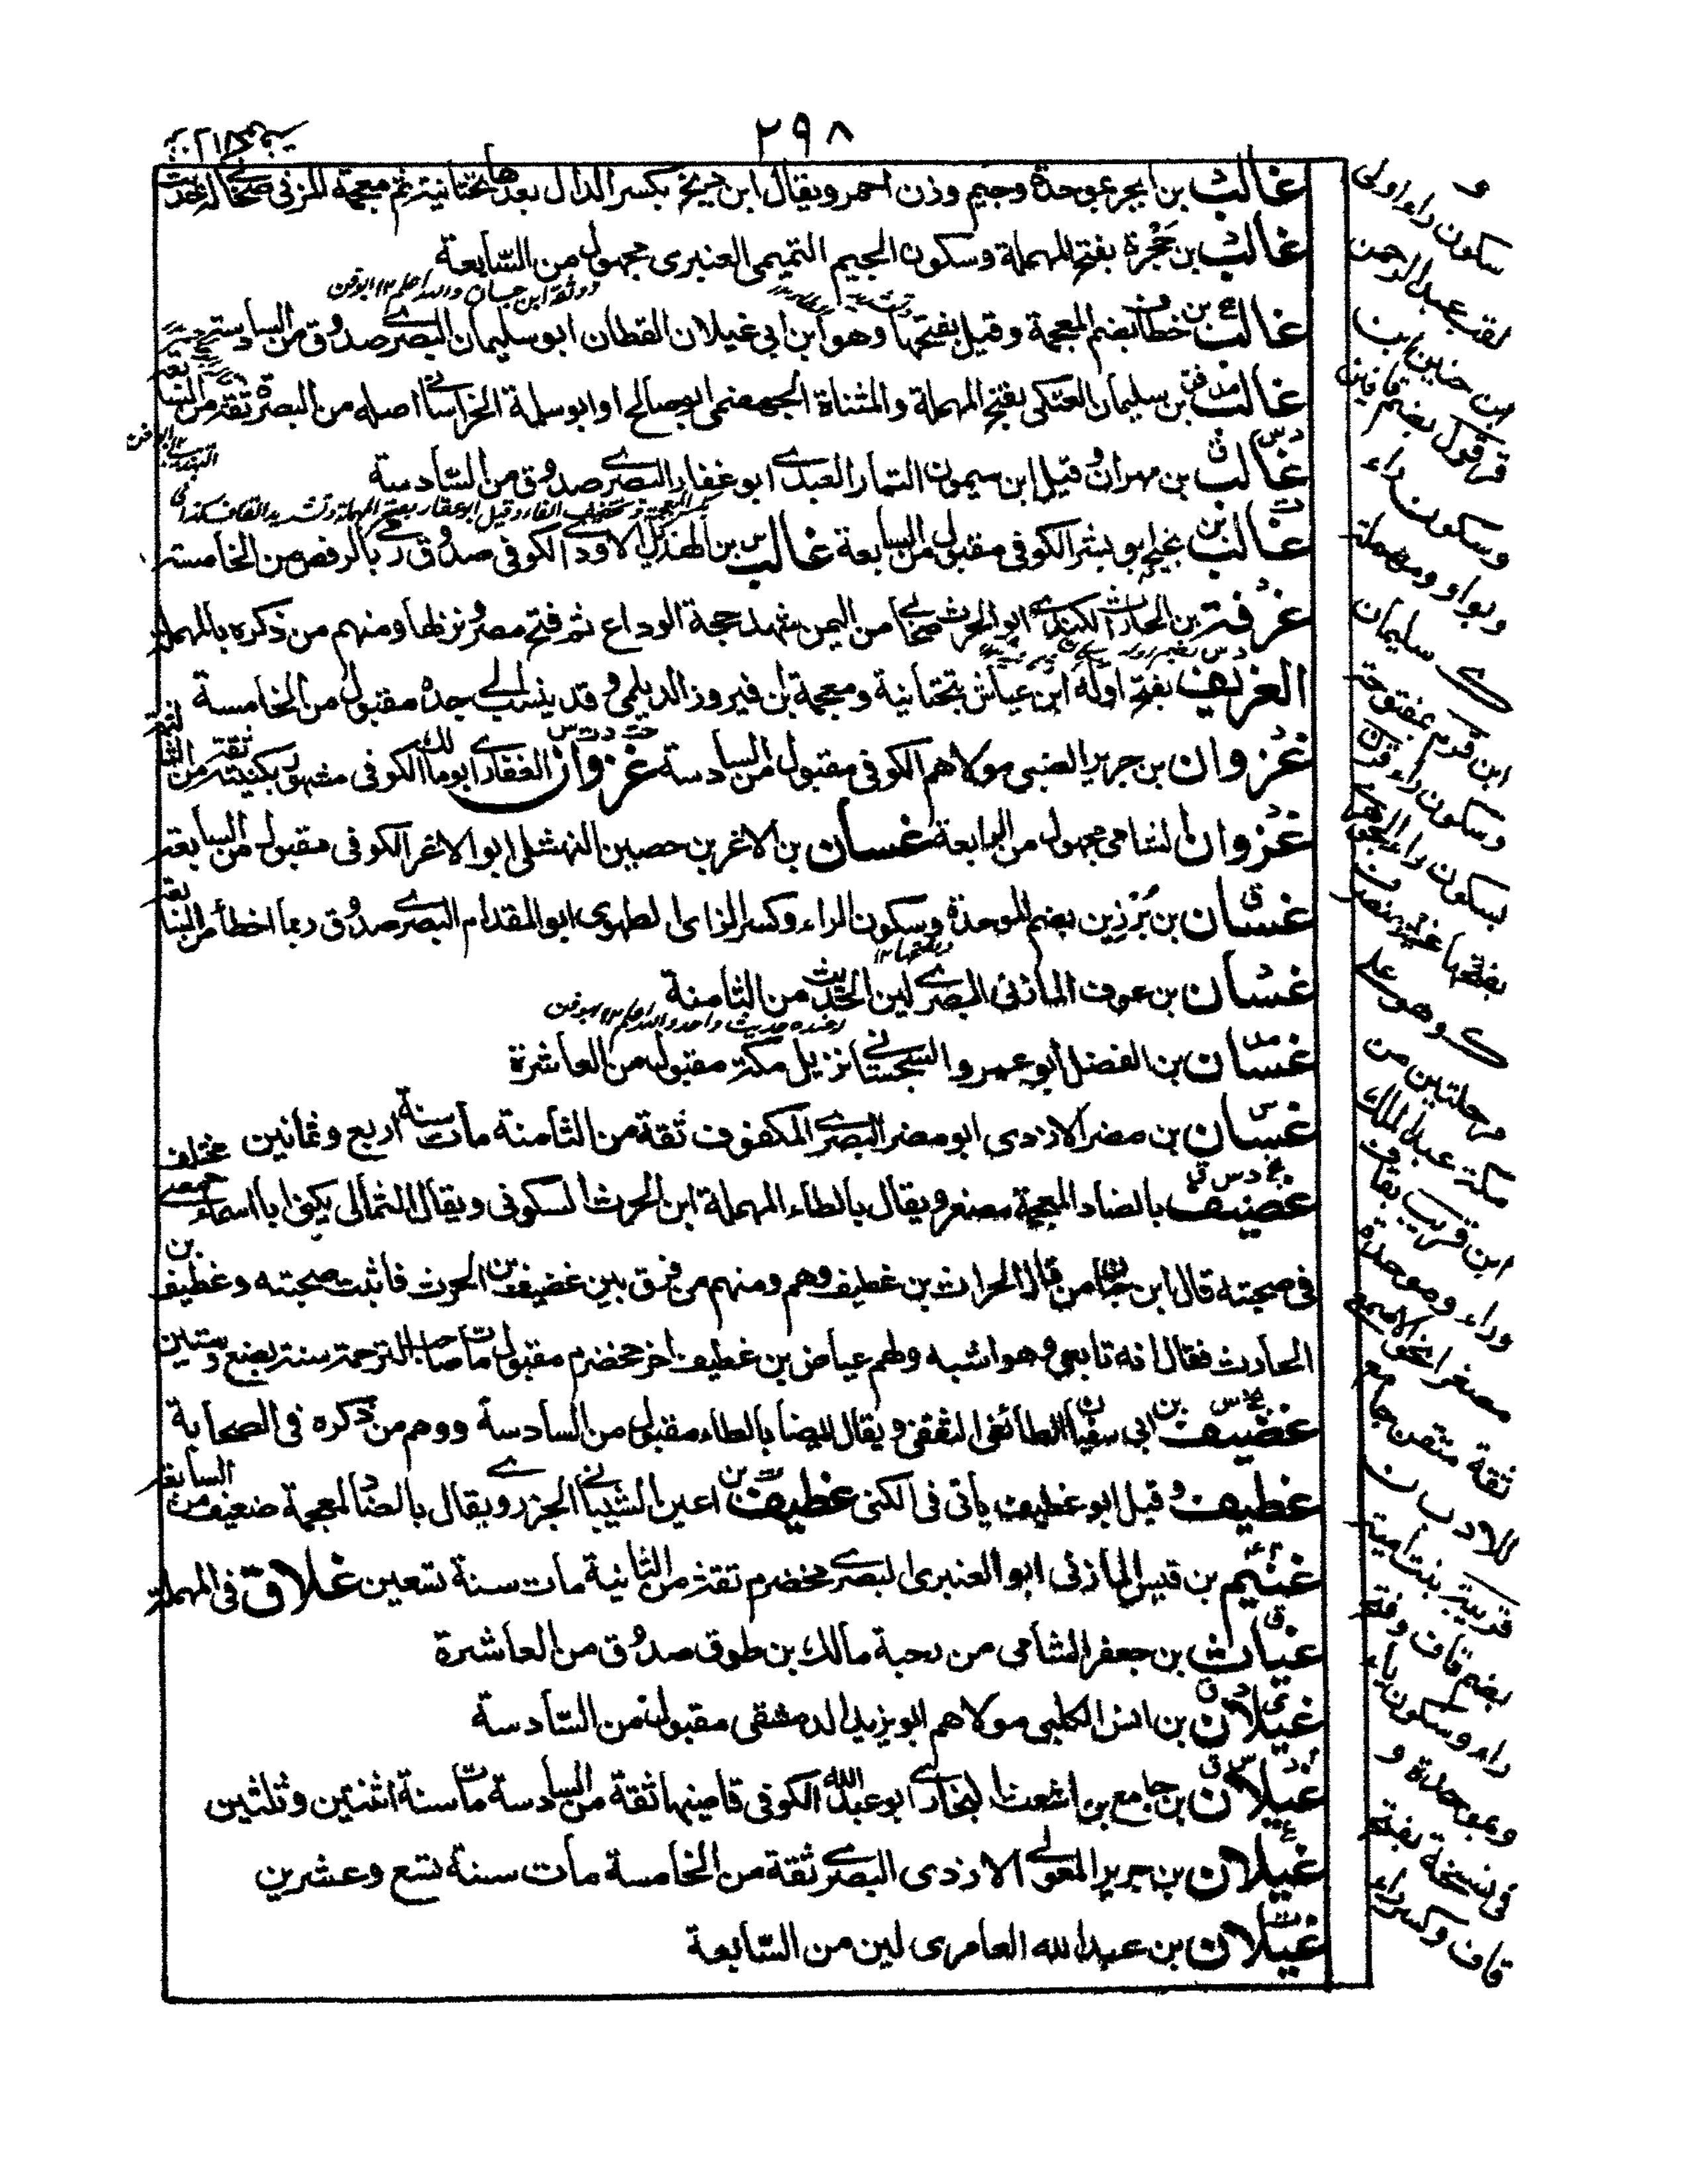 ٢٩٨
غالب بن ابجر بموحدة وجيم وزن احمر ويقال ابن ديخ بكسر الدال بعدها تحتانية ثم معجمة المزني صحابي له حديث
غالب بن حَجْرة بفتح المهملة وسكون الجيم التميمي العنبرى مجهول من السّابعة
ووثقه ابن حبان والله اعلم ١٢ ابو الحسن
غالب بن خطاف بضم المعجمة وقيل بفتحها وهو ابن ابي غيلان القطان ابو سليمان البصرے صدوق من السادسة
غالب بن سليمان العتكى بفتح المهملة والمثناة الجهضمى ابو صالح او ابو سلمة الخراسانے اصله من البصرة ثقة من السابعة
غالب بن مهران وقيل ابن ميمون التمار العبدے ابو غفار البصرے صدوق من السّادسة
بكسر المعجمة وتخفيف الفاء وقيل ابو عقار بفتح المهملة وتشديد القاف
غالب بن نجيح ابو بشر الكوفى مقبول من السابعة غالب بن الهذيل الاودے الكوفى صدوق رمے بالرفض من الخامسة
غرفة بن الحارث الكندے ابو الحرث صحابے من اليمن شهد حجة الوداع ثم فتح مصر ونزلها ومنهم من ذكره بالمهملة
الغريف بفتح اوله ابن عياش بتحتانية ومعجمة ابن فيروز الديلمى وقد ينسب الے جده مقبول من الخامسة
غزوان بن جرير الضبى مولاهم الكوفى مقبول من السادسة غزوان الغفارے ابو مالك الكوفى مشهور بكنيته ثقة من الثالثة
غزوان الشامى مجهول من الرابعة غسان بن الاغر بن حصين النهشلى ابو الاغر الكوفى مقبول من السابعة
غسّان بن بُرْزِين بضم الموحدة وسكون الراء وكسر الزاى الطهوى ابو المقدام البصرے صدوق ربما اخطأ من السابعة
غسّان بن عوف المازنى البصرے لين الحديث من الثامنة
غسّان بن الفضل ابو عمرو السجستانے نزيل مكة مقبول من العاشرة
غسّان بن مضر الازدى ابو مضر البصرے المكفوف ثقة من الثامنة مات سنة اربع وثمانين
غضيف بالضاد المعجمة مصغر ويقال بالطاء المهملة ابن الحرث السكونى ويقال الثمالى يكنى ابا اسماء حمصے مختلف
فى صحبته قال ابن حبان من قال الحارث بن غطيف وهم ومنهم من فرق بين غضيف بن الحرث فاثبت صحبته وغطيف بن
الحارث فقال انه تابعى وهو اشبه ولهم عياض بن غطيف اخر مخضرم مقبول مات صاحب الترجمة سنة بضع وستين
غضيف بن ابى سفيان الطائفى الثقفى ويقال ايضا بالطاء مقبول من السادسة ووهم من ذكره فى الصحابة
غطيف وقيل ابو غطيف ياتى فى الكنى غطيف بن اعين الشيبانے الجزرے ويقال بالضاد المعجمة ضعيف من السابعة
غنيم بن قيس المازنى ابو العنبرى البصرے مخضرم ثقة من الثانية مات سنة تسعين غلاق فى المهملة
غياث بن جعفر الشامى من رحبة مالك بن طوق صدوق من العاشرة
غيلان بن انس الكلبى مولاهم ابو يزيد الدمشقى مقبول من السّادسة
غيلان بن جامع بن اشعث المحاربے ابو عبد الله الكوفى قاضيها ثقة من السادسة مات سنة اثنتين وثلثين
غيلان بن جرير المعولے الازدى البصرے ثقة من الخامسة مات سنة تسع وعشرين
غيلان بن عبد الله العامرى لين من السّابعة
و
سكون راء اولى
لقب عبد الرحمن
ابن حنين ابن
قرقول بضم قافين
وسكون راء
وبواو ومهملة
سليمان
ابن قرم بمفتوحة
وسكون راء
بسكون راء
بفتحها
وهو على
مرحلتين من
مكة عبد الملك
ابن قريب بقاف
وراء وموحدة
مصغرا الاصمعي
ثقة متقن جامع
للادب ن
قريبة بنت امية
بضم قاف وفتح
راء وسكون ياء
وبموحدة و
فى نسخة بفتح
قاف وكسر راء